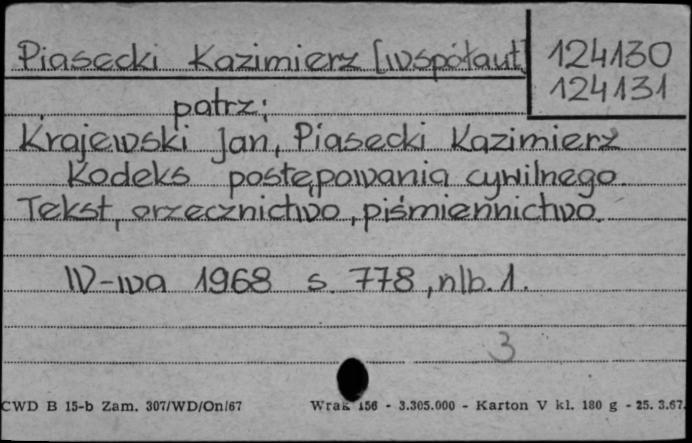 Piasecki Kazimierz [współaut] 124130
124131
patrz:
Krajewski Jan, Piasecki Kazimierz
Kodeks postępowania cywilnego.
Tekst, orzecznictwo, piśmiennictwo.
W-wa 1968 s. 778, nlb. 1.
3
CWD B 15-b Zam. 307/WD/On/67 Wrak 156 - 3.305.000 - Karton V kl. 180 g - 25. 3.67.